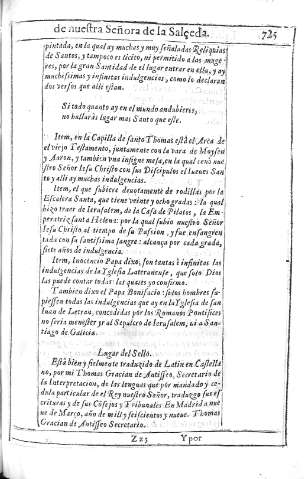 de nuestra Señora de la Salceda. 725
pintada, en la qual ay muchas y muy señaladas Reliquias
de Santos, y tampoco es licito, ni permitido a las muge-
res, por la gran Santidad de el lugar entrar en ella, y ay
muchissimas y infinitas indulgencias, como lo declaran
dos versos que alli estan.
Si todo quanto ay en el mundo anduvieres,
no hallaràs lugar mas Santo que este.
Item, en la Capilla de santo Thomas està el Arca de
el viejo Testamento, juntamente con la vara de Moysen
y Aaron, y tambien una insigne mesa, en la qual cenò nue
stro Señor Iesu Christo con sus Discipulos el lueues San
to y alli ay muchas indulgencias.
Item, el que subiere devotamente de rodillas por la
Escalera Santa, que tiene veinte y ocho gradas: la qual
hizo traer de Ierusalem, de la Casa de Pilatos, la Em-
peratriz santa Helena: por la qual subio nuestro Señor
Iesu Christo al tiempo de su Passion, y fue ensangren
tada con su santissima sangre: alcança por cada grada,
siete años de indulgencia.
Item, Inocencio Papa dixo, son tantas è infinitas las
indulgencias de la Yglesia Lateranense, que solo Dios
las puede contar todas las quales yo confirmo.
Tambien dixo el Papa Bonifacio: si los hombres su-
piessen todas las indulgencias que ay en la Yglesia de san
Iuan de Letran, concedidas por los Romanos Pontifices
no seria menester yr al Sepulcro de Ierusalem, ni a San-
tiago de Galicia.
Lugar del Sello.
Està bien y fielmente traduzido de Latin en Castella
no, por mi Thomas Gracian de Antisco, Secretario de
la Interpretacion, de las lenguas que por mandado y ce-
dula particular de el Rey nuestro Señor, traduzgo sus es
crituras y de sus Cõsejos y Tribunales En Madrid a nue
ue de Março, año de mil y seiscientos y nueue. Thomas
Gracian de Antisco Secretario.
Zz3 Y por